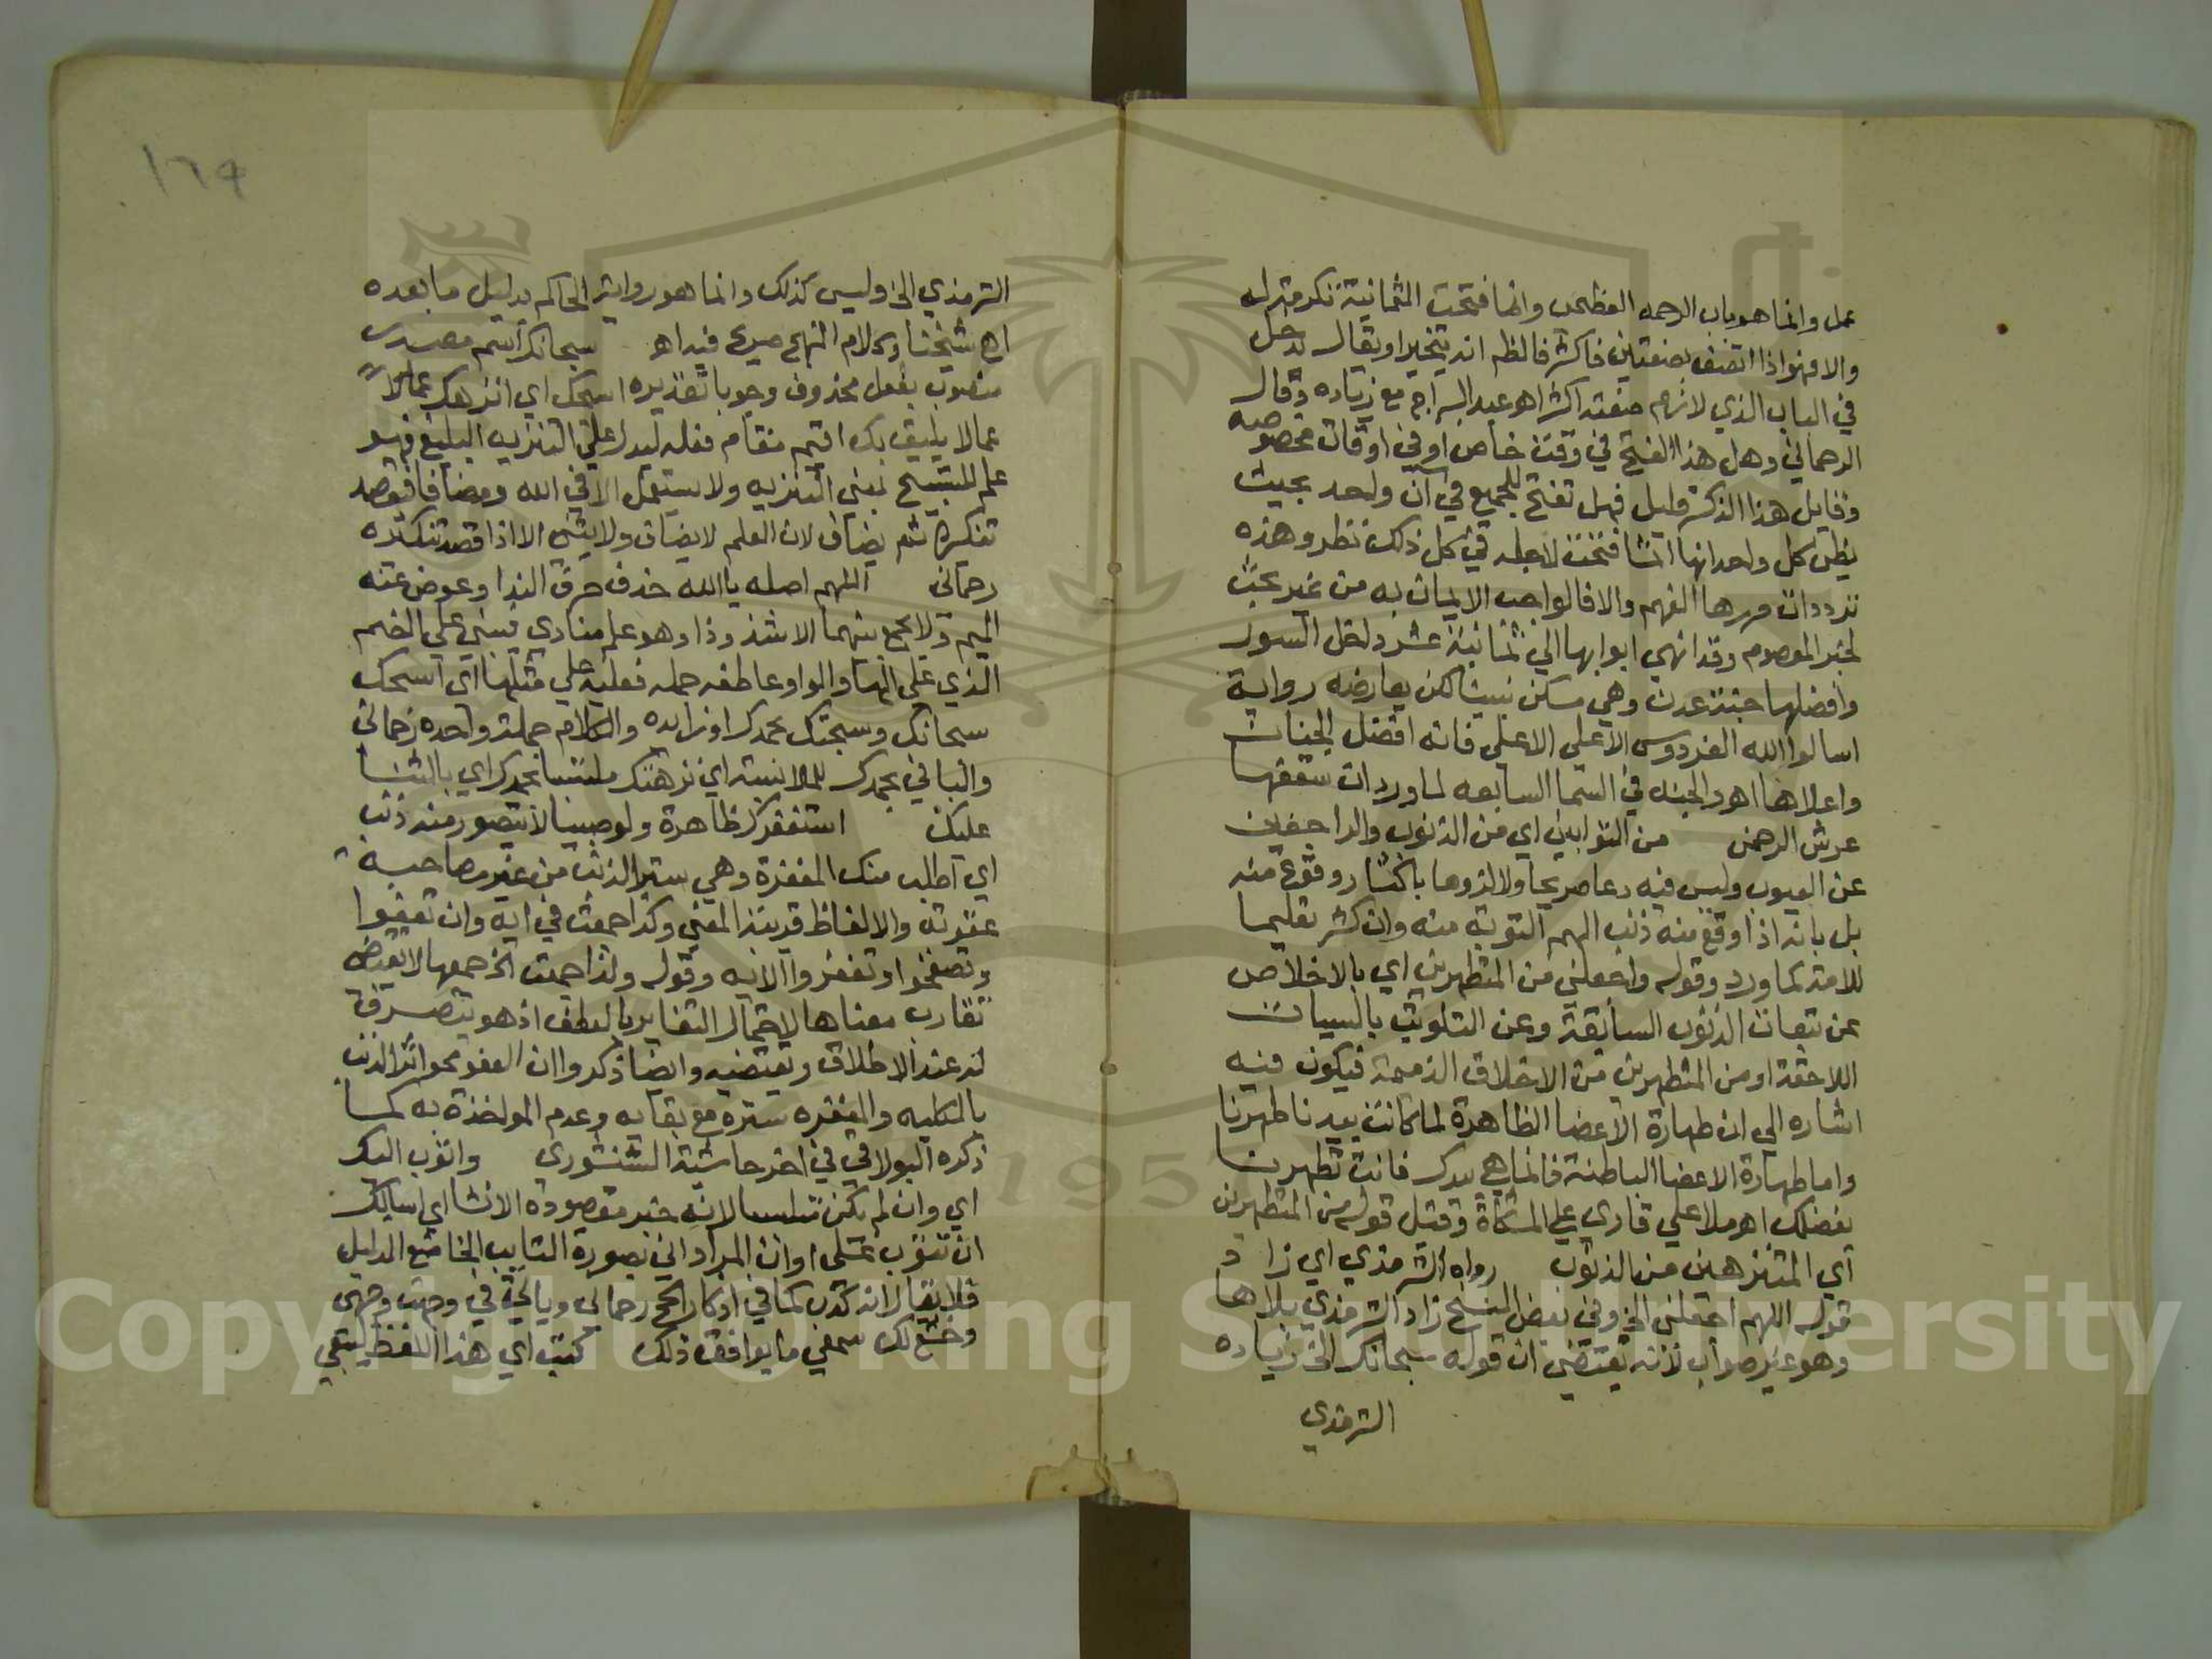 عمل وانما هو باب الرحمه العظمى وانما فتحت الثمانية تكرمة له
والا فهو اذا اتصف بصفتين فاكثر فالظم انه يتخير او يقال يدخل
في الباب الذي لازم صفته اكثر اهو عبد البر اجم مع زياده وقال
الرحماني وهل هذا الفتح في وقت خاص او في اوقات مخصوصه
وقايل هذا الذكر قليل فهل تفتح للجميع في آن واحد بحيث
يظن كل واحد انها انما فتحت لاجله في كل ذلك نظر وهذه
ترددات مرها الفهم والا فالواجب الايمان به من غير بحث
لخبر المعصوم وقد انهي ابوابها الي ثمانية عشر داخل السور
وافضلها جنة عدن وهي مسكن نبينا لكن يعارضه رواية
اسالوا الله الفردوس الاعلي الاعلي فانه افضل الجنات
واعلاها اهو والجنه في السما السابعه لما ورد ان سقفها
عرش الرحمن من التوابين اي من الذنوب والراجعين
عن العيوب وليس فيه دعا صريحا ولا لزوما باكثار وقوع منه
بل بانه اذا وقع منه ذنب الهم التوبة منه وان كثر تعليما
للامة كما ورد وقوله واجعلني من المتطهرين اي بالاخلاص
عن تبعات الذنوب السابقة وعن التلويث بالسيات
اللاحقة او من المتطهرين من الاخلاق الذميمة فيكون فيه
اشاره الي ان طهارة الاعضا الظاهرة لما كانت بيدنا طهرنا
واما طهارة الاعضا الباطنة فانما هي بيدك فانت تطهرنا
بفضلك اهو ملا علي قاري علي المشكاة وقيل قوله من المتطهرين
اي المتنزهين من الذنوب رواه الترمذي اي زاد
قوله اللهم اجعلني الخ وفي بعض النسخ زاد الترمذي بلا ها
وهو غير صواب لانه يقتضي ان قوله سبحانك الخ زياده
الترمذي
١٦٩
الترمذي الخ وليس كذلك وانما هو رواية الحاكم بدليل ما بعده
اهو شيخنا وكلام النهج صريح فيه اهو سبحانك اسم مصدر
منصوب بفعل محذوف وجوبا تقديره اسبحك اي انزهك عما لا
عما لا يليق بك اقيم مقام فعله ليدل علي التنزيه البليغ فهو
علم للتسبيح بمعني التنزيه ولا يستعمل الا في الله ومضافا فيقصد
تنكيره ثم يضاف لان العلم لا يضاف ولا يثني الا اذا قصد تنكيره
رحماني اللهم اصله يا الله حذف حرف الندا وعوض عنه
الميم ولا يجمع بينهما الا شذوذا وهو علم منادي فيبني علي الضم
الذي علي الها والواو عاطفه جمله فعليه علي مثلها اي اسبحك
سبحانك وسبحتك بحمدك او زايده والكلام جملة واحده رحماني
والبا في بحمدك للملابسة اي نزهتك ملتبسا بحمدك اي بالثنا
عليك استغفرك ظاهرة ولو صبيا لا يتصور منه ذنب
اي اطلب منك المغفرة وهي ستر الذنب من غير مصاحبة
عقوبة والالفاظ قريبة المعني وكذا جمعت في اية وان تعفوا
وتصفحوا وتغفروا الايه وقوله ولذا جمعت الخ جمعها لا يقتضي
تقارب معناها لاحتمال التغاير بالعطف اذ هو ينصرف
له عند الاطلاق ويقتضيه وايضا ذكروا ان العفو محو اثر الذنب
بالكليه والمغفره ستره مع بقايه وعدم المواخذة به كما
ذكره البولاقي في اخر حاشية الشنشوري واتوب اليك
اي وان لم يكن تلبسا لانه خبر مقصوده الانشا اي اسالك
ان تتوب علي او ان المراد اني بصورة التايب الخاضع الذليل
فلا يقال انه كذب كما في اذكار الحج رحماني وياتي في وجهت وجهي
وخشع لك سمعي ما يوافق ذلك كتب اي هذا اللفظ ليبقي